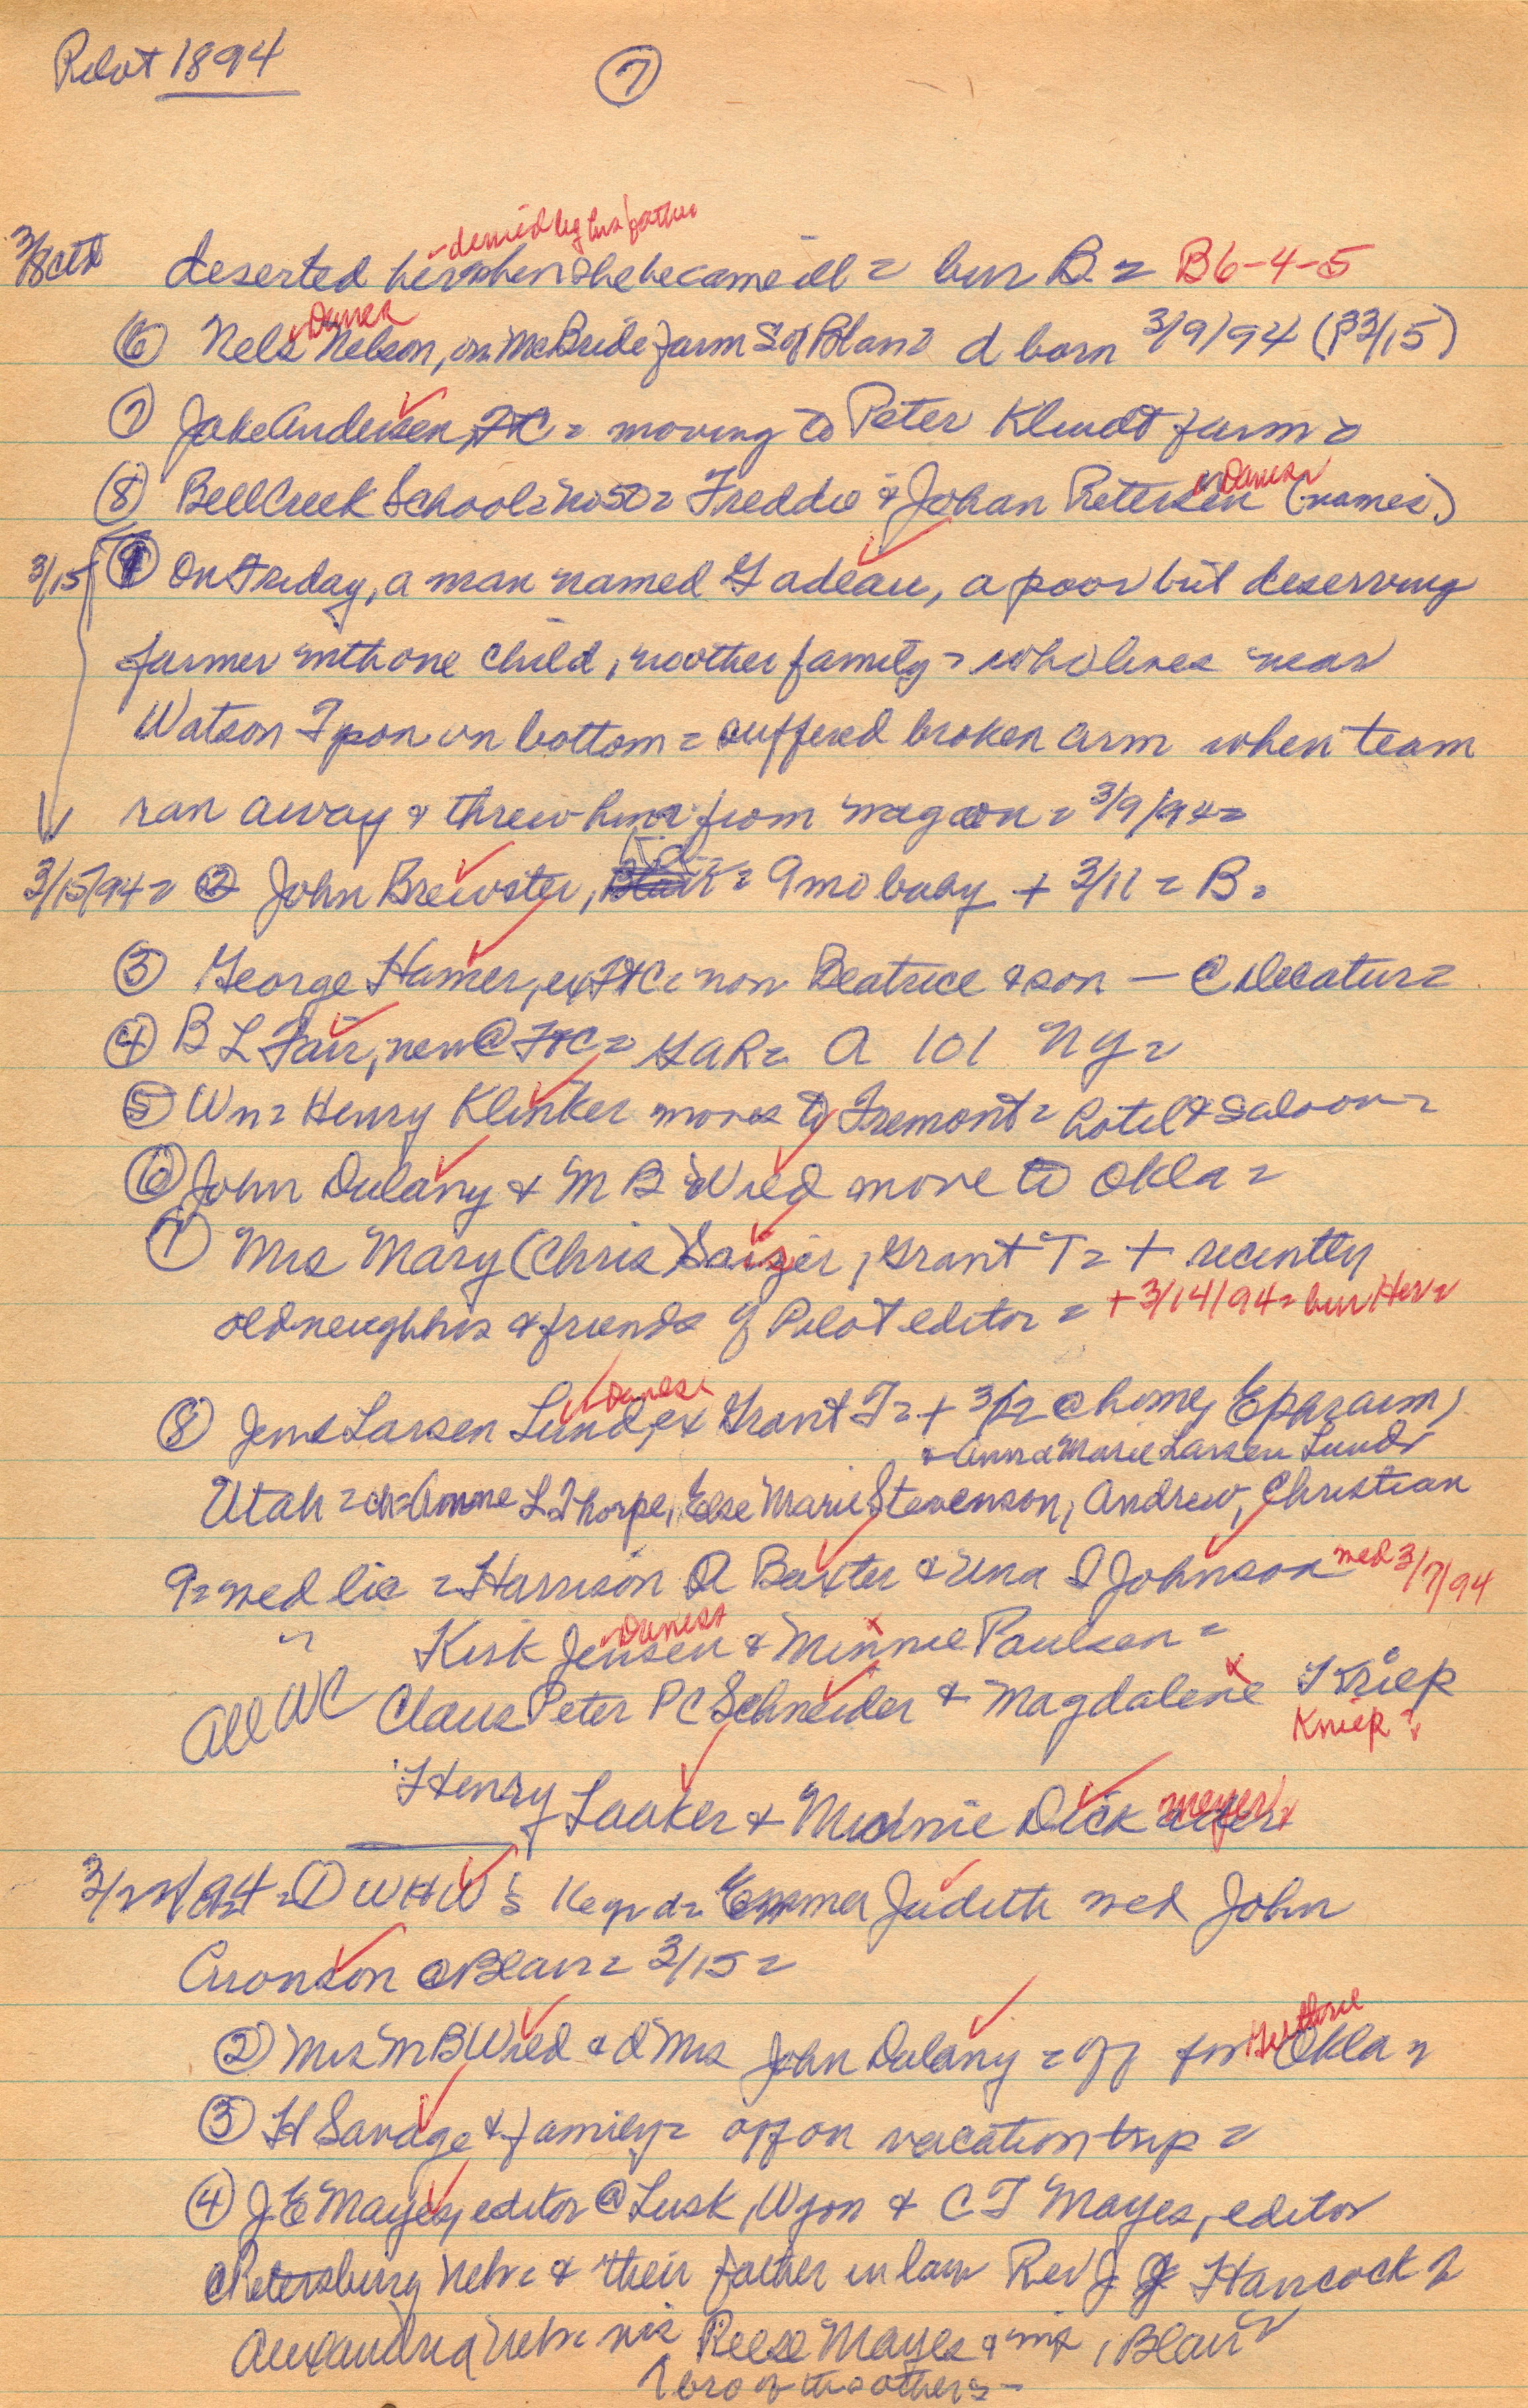 Pilot 1894
7
3/8 ctd
- denied by his father
deserted her when she became ill = bur B. = B6-4-5
Danes
(6) Nels Nelson, on McBride farm S of Blair = d born 3/9/94 (P3/15)
(7) Jake Andersen, FtC = moving to Peter Klundt farm =
Danes
(8) Bell Creek School = No 50 = Freddie & Johan Petersen (names)
3/15 (1) On Friday, a man named Gadeau, a poor but deserving
farmer with one child, no other family = who lives near
Watson Tpson on bottom = suffered broken arm when team
ran away & threw him from wagon = 3/9/94 =
FtC
3/15/94 = (2) John Brewster, Blair = 9 mo baby + 3/11 = B =
(3) George Hamer, ex FtC = now Beatrice & son - @ Decatur =
(4) B L Fair, new @ FtC = GAR = A 101 NY =
(5) Wn = Henry Klinker moves to Fremont = hotel & saloon =
(6) John Dulany & M B Wied move to Okla =
(7) Mrs Mary (Chris) Saizer, Grant T = + recently
old neighbors & friends of Pilot editor = + 3/14/94 = bur Her =
Danes
(8) Jens Larsen Lund, ex Grant T = + 3/2 @ home, Ephraim,
& Anna Marie Larsen Lund
Utah = ch = Anne L Thorpe, Else Marie Stevenson, Andrew, Christian
9 = wed lic = Harrison A Baxter & Una I Johnson wed 3/7/94
Danes
" Kirk Jensen & Minnie Paulsen =
All WC Claus Peter PC Schneider & Magdalene Kriep
Kniep?
Henry Laaker & Minnie Dickmeyer
3/22/94 = (1) WHW's 16 yr d = Emma Judith wed John
Cronson @ Blair = 3/15 =
Gurthrie
(2) Mrs M B Wied & d Mrs John Dulany = off for Okla =
(3) H Savage & family = off on vacation trip =
(4) J E Mayes, editor @ Lusk, Wyon & C T Mayes, editor
@ Petersburg Nebr = & their father in law Rev J J Hancock of
Alexandria Nebr vis Reese Mayes & mr, Blair
bro of the others -